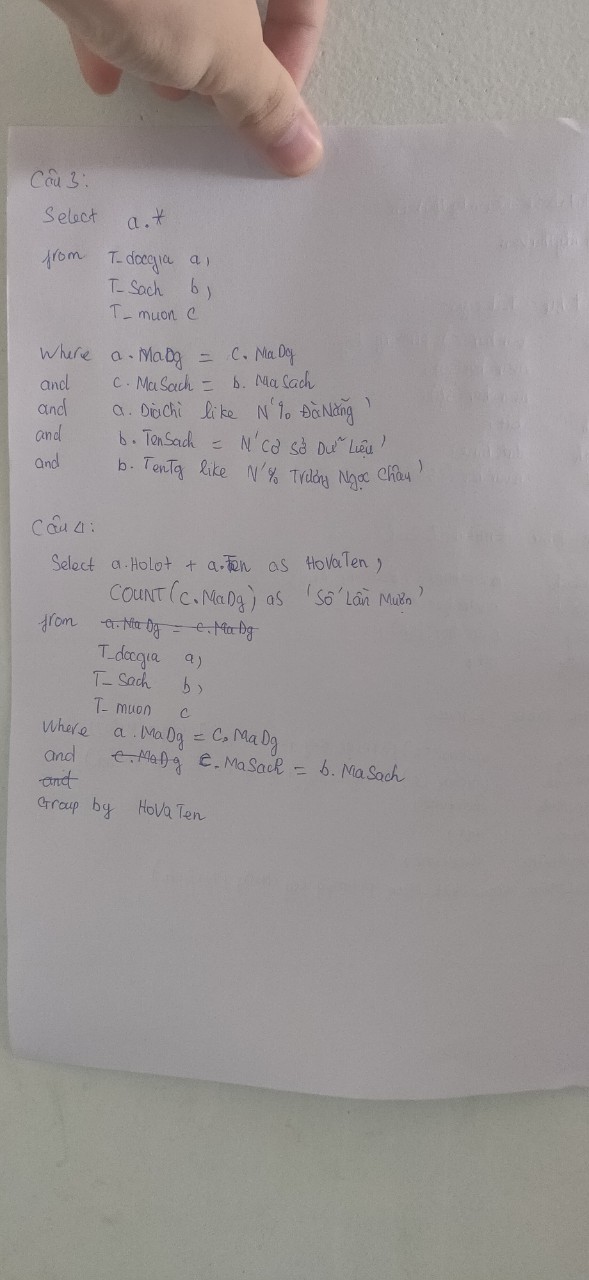 Câu 3:
Select a.*
from T_docgia a,
T_Sach b,
T_muon c
Where a.MaDg = c.MaDg
and c.MaSach = b.MaSach
and a.DiaChi like N'% Đà Nẵng'
and b.TenSach = N'Cơ Sở Dữ Liệu'
and b.TenTg like N'% Trương Ngọc Châu'
Câu 4:
Select a.Holot + a.Ten as HoVaTen,
COUNT(c.MaDg) as 'Số Lần Mượn'
from a.MaDg = c.MaDg
T_docgia a,
T_Sach b,
T_muon c
Where a.MaDg = c.MaDg
and c.MaDg c.MaSach = b.MaSach
and
Group by HoVaTen